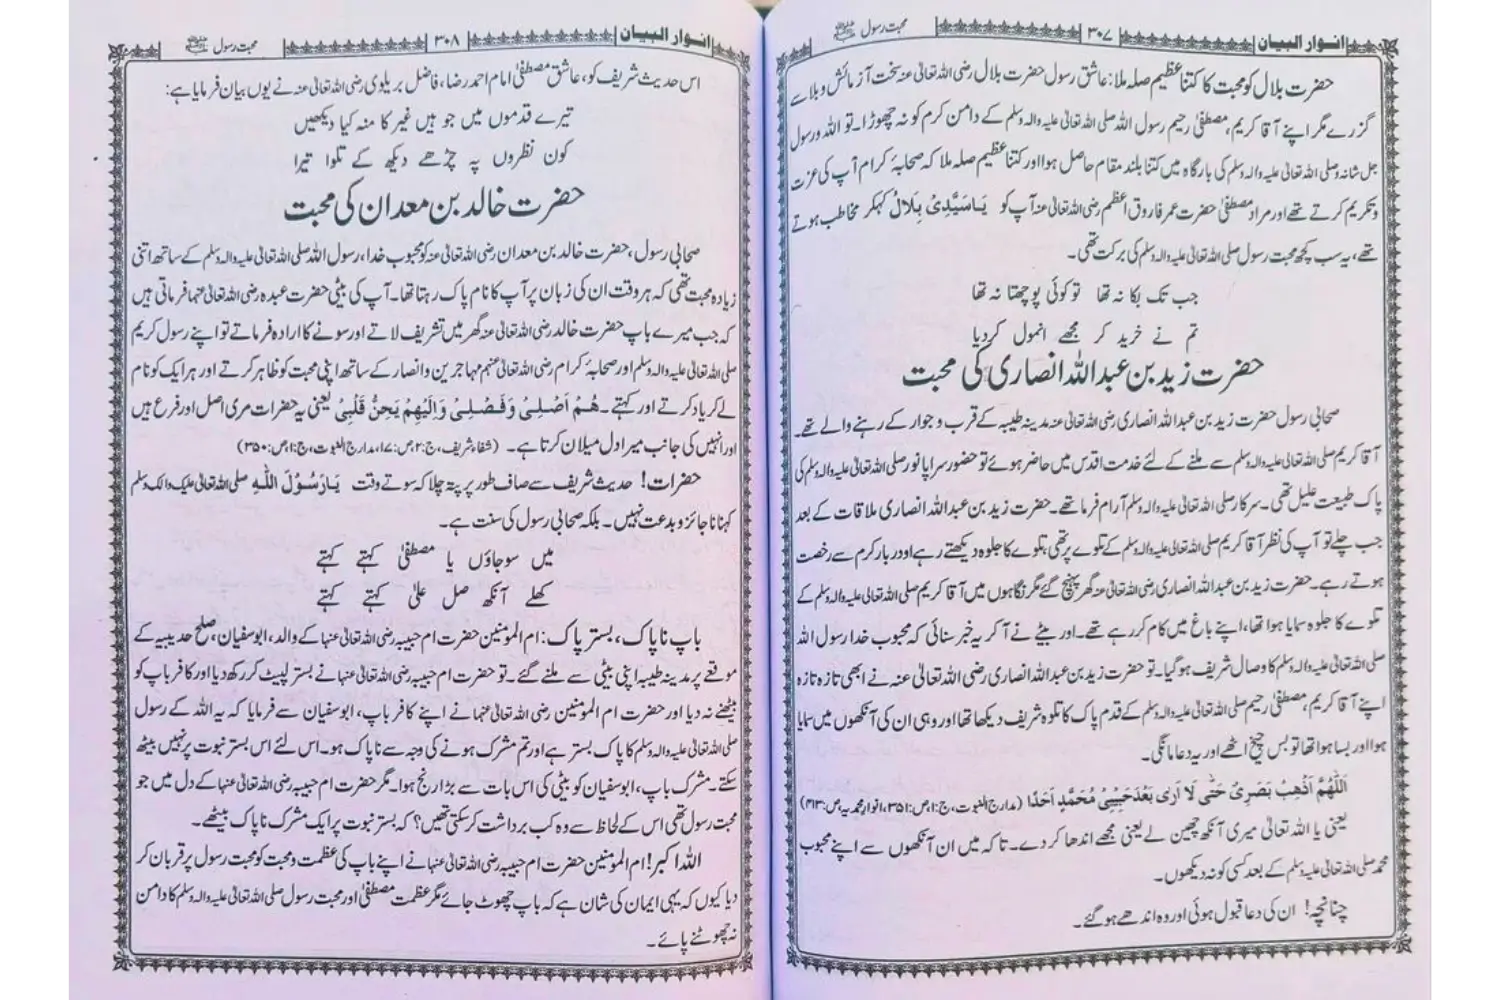 انوار البیان ۳۰۷ محبت رسول ﷺ
حضرت بلال کو محبت کا کتنا عظیم صلہ ملا: عاشق رسول حضرت بلال رضی اللہ تعالیٰ عنہ سخت آزمائش و بلا سے
گزرے مگر اپنے آقا کریم، مصطفیٰ رحیم رسول اللہ صلی اللہ تعالیٰ علیہ والہ وسلم کے دامن کرم کو نہ چھوڑا۔ تو اللہ و رسول
جل شانہ و صلی اللہ تعالیٰ علیہ والہ وسلم کی بارگاہ میں کتنا بلند مقام حاصل ہوا اور کتنا عظیم صلہ ملا کہ صحابۂ کرام آپ کی عزت
و تکریم کرتے تھے اور مراد مصطفیٰ حضرت عمر فاروق اعظم رضی اللہ تعالیٰ عنہ آپ کو یَا سَیَّدِیْ بِلَالْ کہکر مخاطب ہوتے
تھے، یہ سب کچھ محبت رسول صلی اللہ تعالیٰ علیہ والہ وسلم کی برکت تھی۔
جب تک بکا نہ تھا تو کوئی پوچھتا نہ تھا
تم نے خرید کر مجھے انمول کر دیا
حضرت زید بن عبد اللہ انصاری کی محبت
صحابی رسول حضرت زید بن عبد اللہ انصاری رضی اللہ تعالیٰ عنہ مدینہ طیبہ کے قرب و جوار کے رہنے والے تھے۔
آقا کریم صلی اللہ تعالیٰ علیہ والہ وسلم سے ملنے کے لئے خدمت اقدس میں حاضر ہوئے تو حضور سراپا نور صلی اللہ تعالیٰ علیہ والہ وسلم کی
پاک طبیعت علیل تھی۔ سرکار صلی اللہ تعالیٰ علیہ والہ وسلم آرام فرما تھے۔ حضرت زید بن عبد اللہ انصاری ملاقات کے بعد
جب چلے تو آپ کی نظر آقا کریم صلی اللہ تعالیٰ علیہ والہ وسلم کے تلوے پر تھی، تلوے کا جلوہ دیکھتے رہے اور دربار کرم سے رخصت
ہوتے رہے۔ حضرت زید بن عبد اللہ انصاری رضی اللہ تعالیٰ عنہ گھر پہنچ گئے مگر نگاہوں میں آقا کریم صلی اللہ تعالیٰ علیہ والہ وسلم کے
تلوے کا جلوہ سمایا ہوا تھا، اپنے باغ میں کام کر رہے تھے۔ اور بیٹے نے آکر یہ خبر سنائی کہ محبوب خدا رسول اللہ
صلی اللہ تعالیٰ علیہ والہ وسلم کا وصال شریف ہو گیا۔ تو حضرت زید بن عبد اللہ انصاری رضی اللہ تعالیٰ عنہ نے ابھی تازہ تازہ
اپنے آقا کریم، مصطفیٰ رحیم صلی اللہ تعالیٰ علیہ والہ وسلم کے قدم پاک کا تلوہ شریف دیکھا تھا اور وہی ان کی آنکھوں میں سمایا
ہوا اور بسا ہوا تھا تو بس چیخ اٹھے اور یہ دعا مانگی۔
اَللّٰهُمَّ اَذْهِبْ بَصَرِیْ حَتّٰی لَا اَرٰی بَعْدَ حَبِیْبِیْ مُحَمَّدٍ اَحَدًا (مدارج النبوت، ج:۱، ص:۳۵۱، انوار محمدیہ، ص:۴۱۳)
یعنی یا اللہ تعالیٰ میری آنکھ چھین لے یعنی مجھے اندھا کر دے۔ تاکہ میں ان آنکھوں سے اپنے محبوب
محمد صلی اللہ تعالیٰ علیہ والہ وسلم کے بعد کسی کو نہ دیکھوں۔
چنانچہ! ان کی دعا قبول ہوئی اور وہ اندھے ہو گئے۔
انوار البیان ۳۰۸ محبت رسول ﷺ
اس حدیث شریف کو، عاشق مصطفیٰ امام احمد رضا، فاضل بریلوی رضی اللہ تعالیٰ عنہ نے یوں بیان فرمایا ہے:
تیرے قدموں میں جو ہیں غیر کا منہ کیا دیکھیں
کون نظروں پہ چڑھے دیکھ کے تلوا تیرا
حضرت خالد بن معدان کی محبت
صحابی رسول، حضرت خالد بن معدان رضی اللہ تعالیٰ عنہ کو محبوب خدا، رسول اللہ صلی اللہ تعالیٰ علیہ والہ وسلم کے ساتھ اتنی
زیادہ محبت تھی کہ ہر وقت ان کی زبان پر آپ کا نام پاک رہتا تھا۔ آپ کی بیٹی حضرت عبدہ رضی اللہ تعالیٰ عنہا فرماتی ہیں
کہ جب میرے باپ حضرت خالد رضی اللہ تعالیٰ عنہ گھر میں تشریف لاتے اور سونے کا ارادہ فرماتے تو اپنے رسول کریم
صلی اللہ تعالیٰ علیہ والہ وسلم اور صحابۂ کرام رضی اللہ تعالیٰ عنہم مہاجرین و انصار کے ساتھ اپنی محبت کو ظاہر کرتے اور ہر ایک کو نام
لے کر یاد کرتے اور کہتے۔ هُمْ اَصْلِیْ وَفَصْلِیْ وَاِلَیْهِمْ یَحِنُّ قَلْبِیْ یعنی یہ حضرات مری اصل اور فرع ہیں
اور انہیں کی جانب میرا دل میلان کرتا ہے۔ (شفا شریف، ج:۲، ص:۱۷، مدارج النبوت، ج:۱، ص:۳۵۰)
حضرات! حدیث شریف سے صاف طور پر پتہ چلا کہ سوتے وقت یَارَسُوْلَ اللّٰهِ صلی اللہ تعالیٰ علیک والک وسلم
کہنا ناجائز و بدعت نہیں۔ بلکہ صحابی رسول کی سنت ہے۔
میں سو جاؤں یا مصطفیٰ کہتے کہتے
کھلے آنکھ صل علیٰ کہتے کہتے
باپ ناپاک، بستر پاک: ام المؤمنین حضرت ام حبیبہ رضی اللہ تعالیٰ عنہا کے والد، ابوسفیان، صلح حدیبیہ کے
موقعے پر مدینہ طیبہ اپنی بیٹی سے ملنے گئے۔ تو حضرت ام حبیبہ رضی اللہ تعالیٰ عنہا نے بستر لپیٹ کر رکھ دیا اور کافر باپ کو
بیٹھنے نہ دیا اور حضرت ام المؤمنین رضی اللہ تعالیٰ عنہا نے اپنے کافر باپ، ابوسفیان سے فرمایا کہ یہ اللہ کے رسول
صلی اللہ تعالیٰ علیہ والہ وسلم کا پاک بستر ہے اور تم مشرک ہونے کی وجہ سے ناپاک ہو۔ اس لئے اس بستر نبوت پر نہیں بیٹھ
سکتے۔ مشرک باپ، ابوسفیان کو بیٹی کی اس بات سے بڑا رنج ہوا۔ مگر حضرت ام حبیبہ رضی اللہ تعالیٰ عنہا کے دل میں جو
محبت رسول تھی اس کے لحاظ سے وہ کب برداشت کر سکتی تھیں؟ کہ بستر نبوت پر ایک مشرک ناپاک بیٹھے۔
اللہ اکبر! ام المؤمنین حضرت ام حبیبہ رضی اللہ تعالیٰ عنہا نے اپنے باپ کی عظمت و محبت کو محبت رسول پر قربان کر
دیا کیوں کہ یہی ایمان کی شان ہے کہ باپ چھوٹ جائے مگر عظمت مصطفیٰ اور محبت رسول صلی اللہ تعالیٰ علیہ والہ وسلم کا دامن
نہ چھوٹنے پائے۔